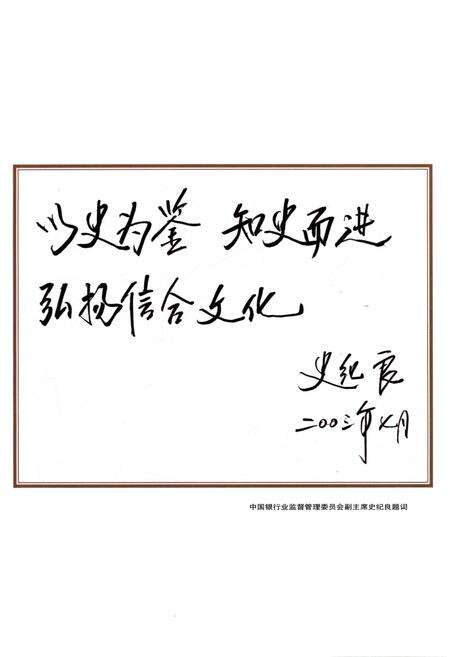 以史为鉴 知史而进
弘扬信合文化
史纪良
二〇〇三年七月
中国银行业监督管理委员会副主席史纪良题词